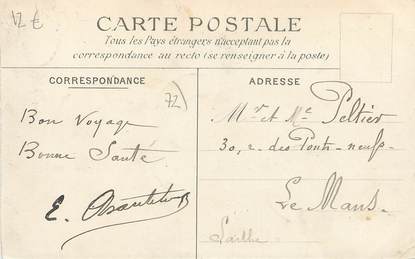 12 €
CARTE POSTALE
Tous les Pays étrangers n'acceptant pas la
correspondance au recto (se renseigner à la poste)
CORRESPONDANCE
72)
Bon Voyage
Bonne Santé
E.
ADRESSE
Mr et Me Peltier
30, r. des Ponts-neufs-
Le Mans-
Sarthe